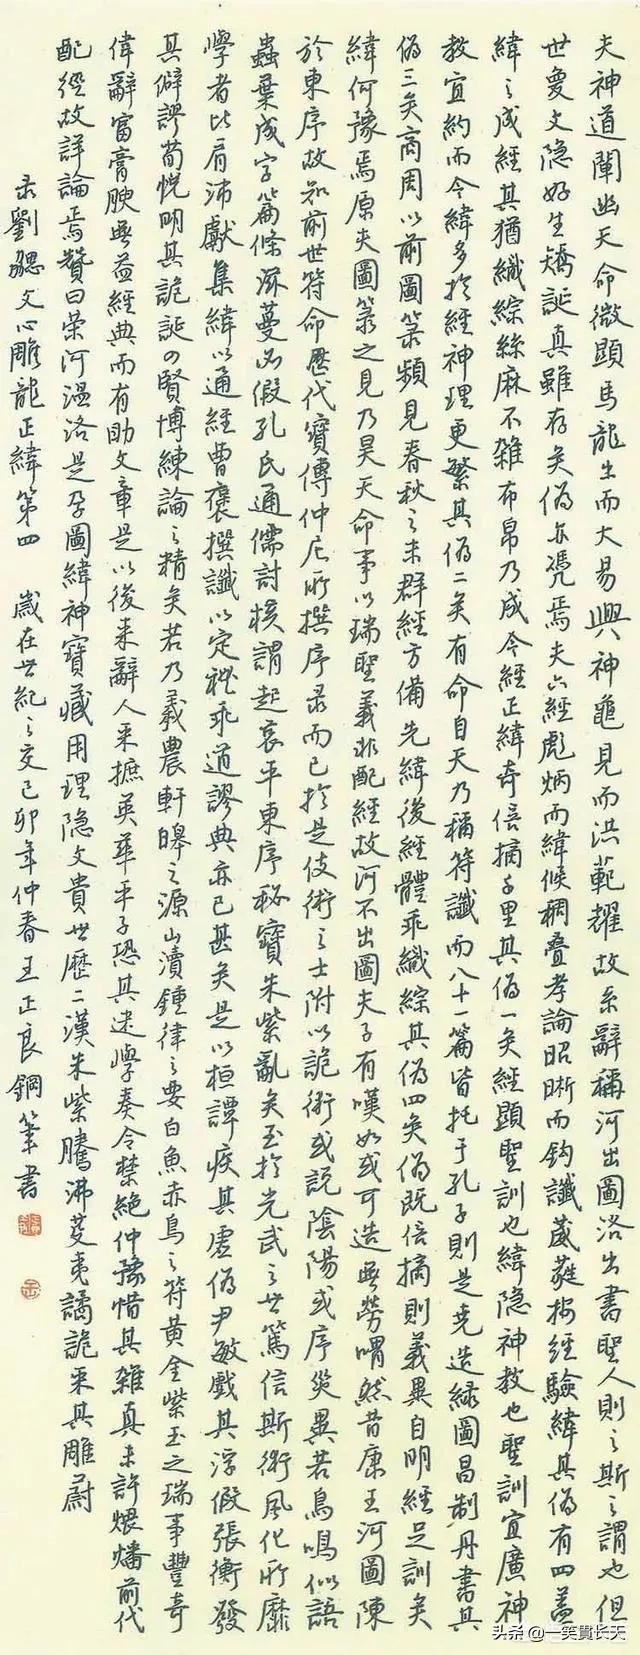 夫神道闡幽天命微顯馬龍出而大易興神龜見而洪範耀故系辭稱河出圖洛出書聖人則之斯之謂也但
世夐文隐好生矯誕真雖存矣偽亦憑焉夫六經彪炳而緯候稠叠孝論昭晰而鈎讖葳蕤按經驗緯其偽有四蓋
緯之成經其猶織綜絲麻不雜布帛乃成今經正緯奇倍摘千里其偽一矣經顯聖訓也緯隐神教也聖訓宜廣神
教宜約而今緯多於經神理更繁其偽二矣有命自天乃稱符讖而八十一篇皆托于孔子則是堯造緑圖昌制丹書其
偽三矣商周以前圖箓頻見春秋之末群經方備先緯後經體乖織綜其偽四矣偽既倍摘則義異自明經足訓矣
緯何豫焉原夫圖箓之見乃昊天命事以瑞聖義非配經故河不出圖夫子有嘆如或可造無勞喟然昔康王河圖陳
於東序故知前世符命歷代寶傳仲尼所撰序录而已於是伎術之士附以詭術或説陰陽或序災異若鳥鳴似語
蟲葉成字篇條滋蔓必假孔氏通儒討核謂起哀平東序秘寶朱紫亂矣至於光武之世篤信斯術風化所靡
學者比肩沛獻集緯以通經曹褒撰讖以定禮乖道謬典亦已甚矣是以桓譚疾其虛偽尹敏戲其浮假張衡發
其僻謬荀悦明其詭誕四賢博練論之精矣若乃羲農軒皞之源山瀆鍾律之要白魚赤烏之符黃金紫玉之瑞事豐奇
偉辭富膏腴無益經典而有助文章是以後來辭人采摭英華平子恐其迷學奏令禁絕仲豫惜其雜真未許煨燔前代
配經故詳論焉贊曰榮河溫洛是孕圖緯神寶藏用理隐文貴世歷二漢朱紫騰沸芟夷譎詭采其雕蔚
录劉勰文心雕龍正緯第四 歲在世紀之交己卯年仲春王正良鋼筆書
头条@一笑貫长天